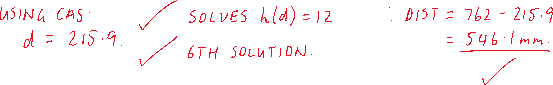 USING CAS:
d = 215.9.
SOLVES h(d) = 12
6TH SOLUTION.
∴ DIST = 762 - 215.9
= 546.1mm.